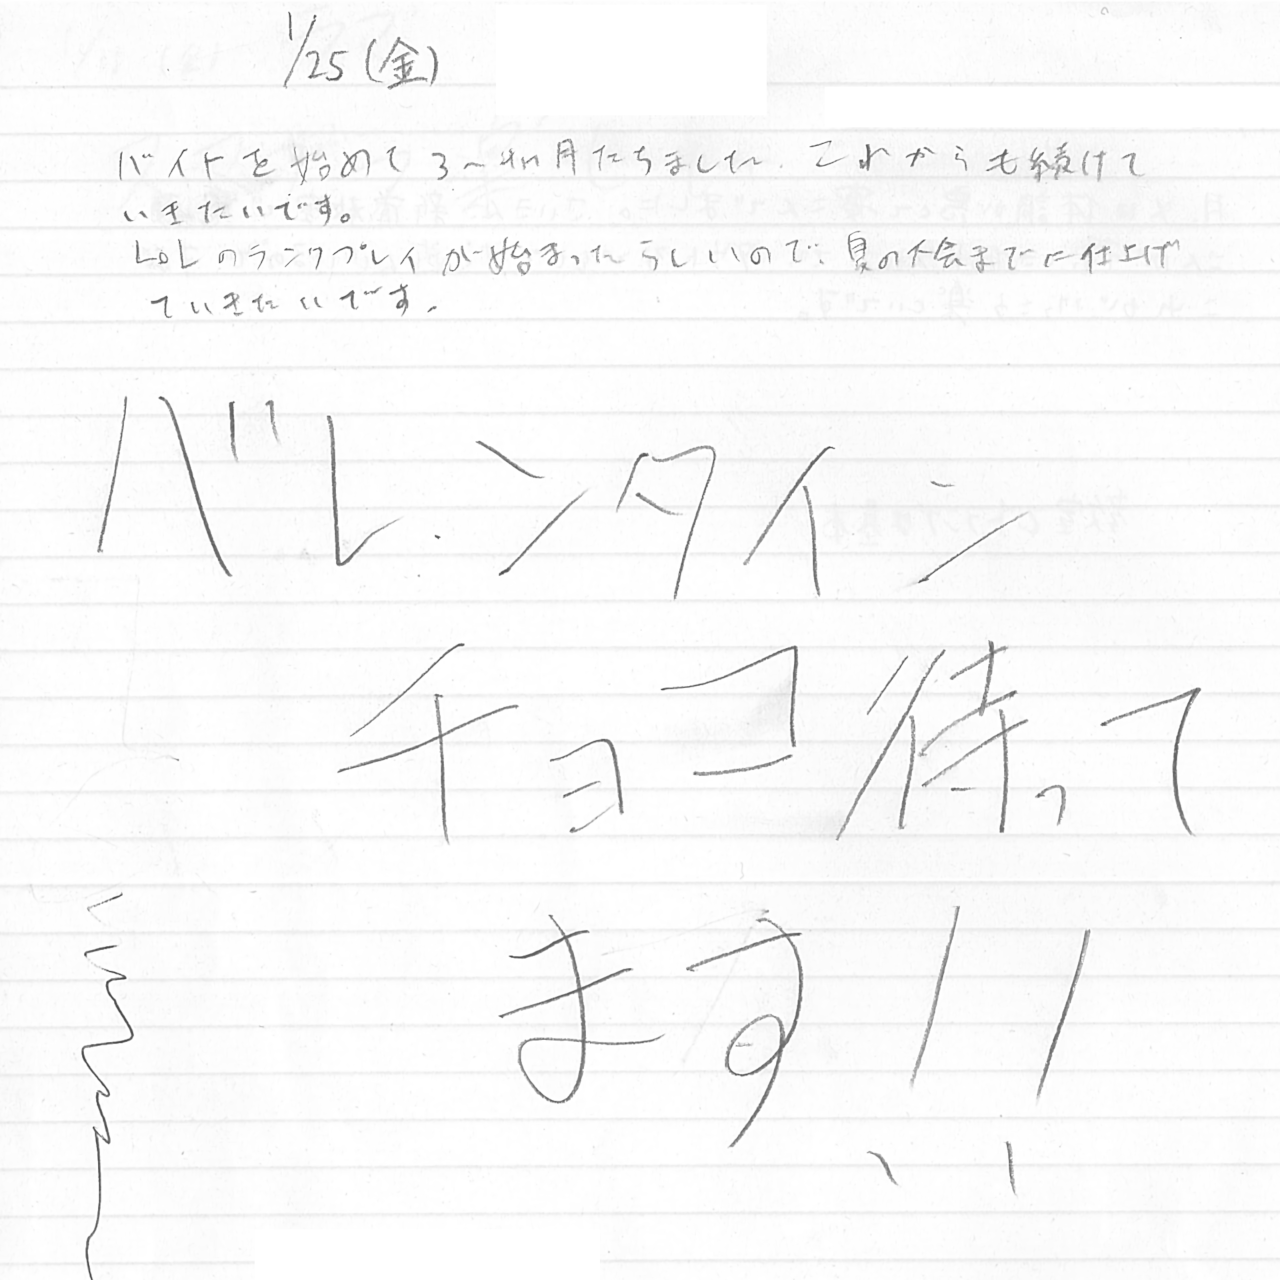 1/25(金)
バイトを始めて3〜4ヶ月たちました。これからも続けて
いきたいです。
LoLのランクプレイが始まったらしいので、夏の大会までに仕上げ
ていきたいです。
バレンタイン
チョコ待って
ます!!